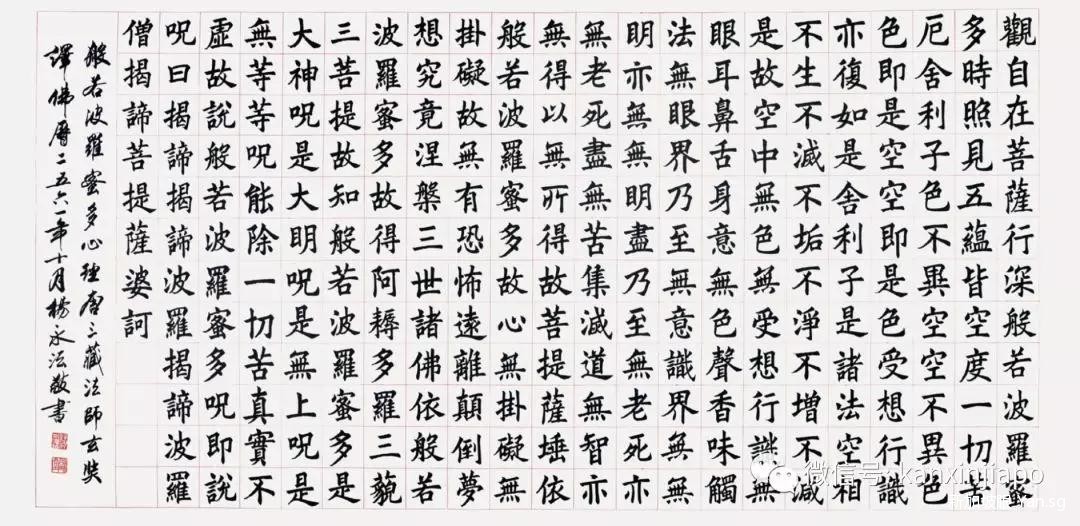 觀自在菩薩行深般若波羅蜜
多時照見五蘊皆空度一切苦
厄舍利子色不異空空不異色
色即是空空即是色受想行識
亦復如是舍利子是諸法空相
不生不滅不垢不淨不增不減
是故空中無色無受想行識無
眼耳鼻舌身意無色聲香味觸
法無眼界乃至無意識界無無
明亦無無明盡乃至無老死亦
無老死盡無苦集滅道無智亦
無得以無所得故菩提薩埵依
般若波羅蜜多故心無掛礙無
掛礙故無有恐怖遠離顛倒夢
想究竟涅槃三世諸佛依般若
波羅蜜多故得阿耨多羅三藐
三菩提故知般若波羅蜜多是
大神呪是大明呪是無上呪是
無等等呪能除一切苦真實不
虛故說般若波羅蜜多呪即說
呪曰揭諦揭諦波羅揭諦波羅
僧揭諦菩提薩婆訶
般若波羅蜜多心經唐三藏法師玄奘
譯佛曆二五六一年十月楊永法敬書
微信号: kanxinjiapo